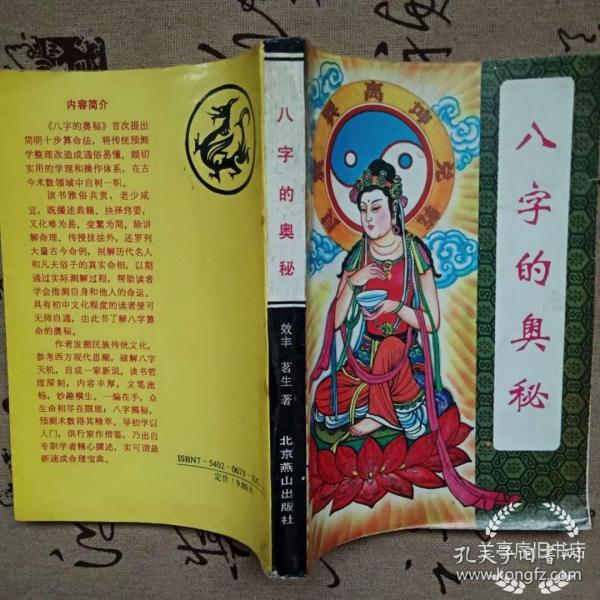 内容简介
《八字的奥秘》首次提出
简明十步算命法，将传统预测
学整理改造成通俗易懂，颇切
实用的学理和操作体系，在古
今术数领域中自树一帜。
该书雅俗共赏，老少咸
宜，既撮述典籍、抉择窍要，
又化难为易、变繁为简。除讲
解命理、传授技法外，还罗列
大量古今命例，剖解历代名人
和凡夫俗子的真实命相，以期
通过实际测解过程，帮助读者
学会推测自身和他人的命运。
具有初中文化程度的读者便可
无师自通，由此书了解八字算
命的奥秘。
作者发掘民族传统文化，
参考西方现代思潮，破解八字
天机，自成一家新说。该书哲
理深刻，内容丰厚，文笔流
畅，妙趣横生。一编在手，众
生命相尽在眼底；八字揭秘，
预测术数得其精萃。导初学以
入门，供行家作借鉴，乃出自
专职学者精心撰述，实可谓最
新速成命理宝典。
ISBN7-5402-0673-
定价：9.80元
八字的奥秘
效丰 茗生 著
北京燕山出版社
巽离坤兑
八字的奥秘
孔夫子旧书网
www.kongfz.com